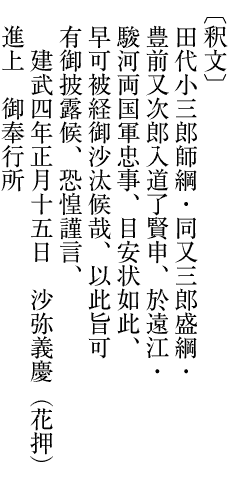 〔釈文〕
田代小三郎師綱・同又三郎盛綱・
豊前又次郎入道了賢申、於遠江・
駿河両国軍忠事、目安状如此、
早可被経御沙汰候哉、以此旨可
有御披露候、恐惶謹言、
建武四年正月十五日　沙弥義慶（花押）
進上　御奉行所